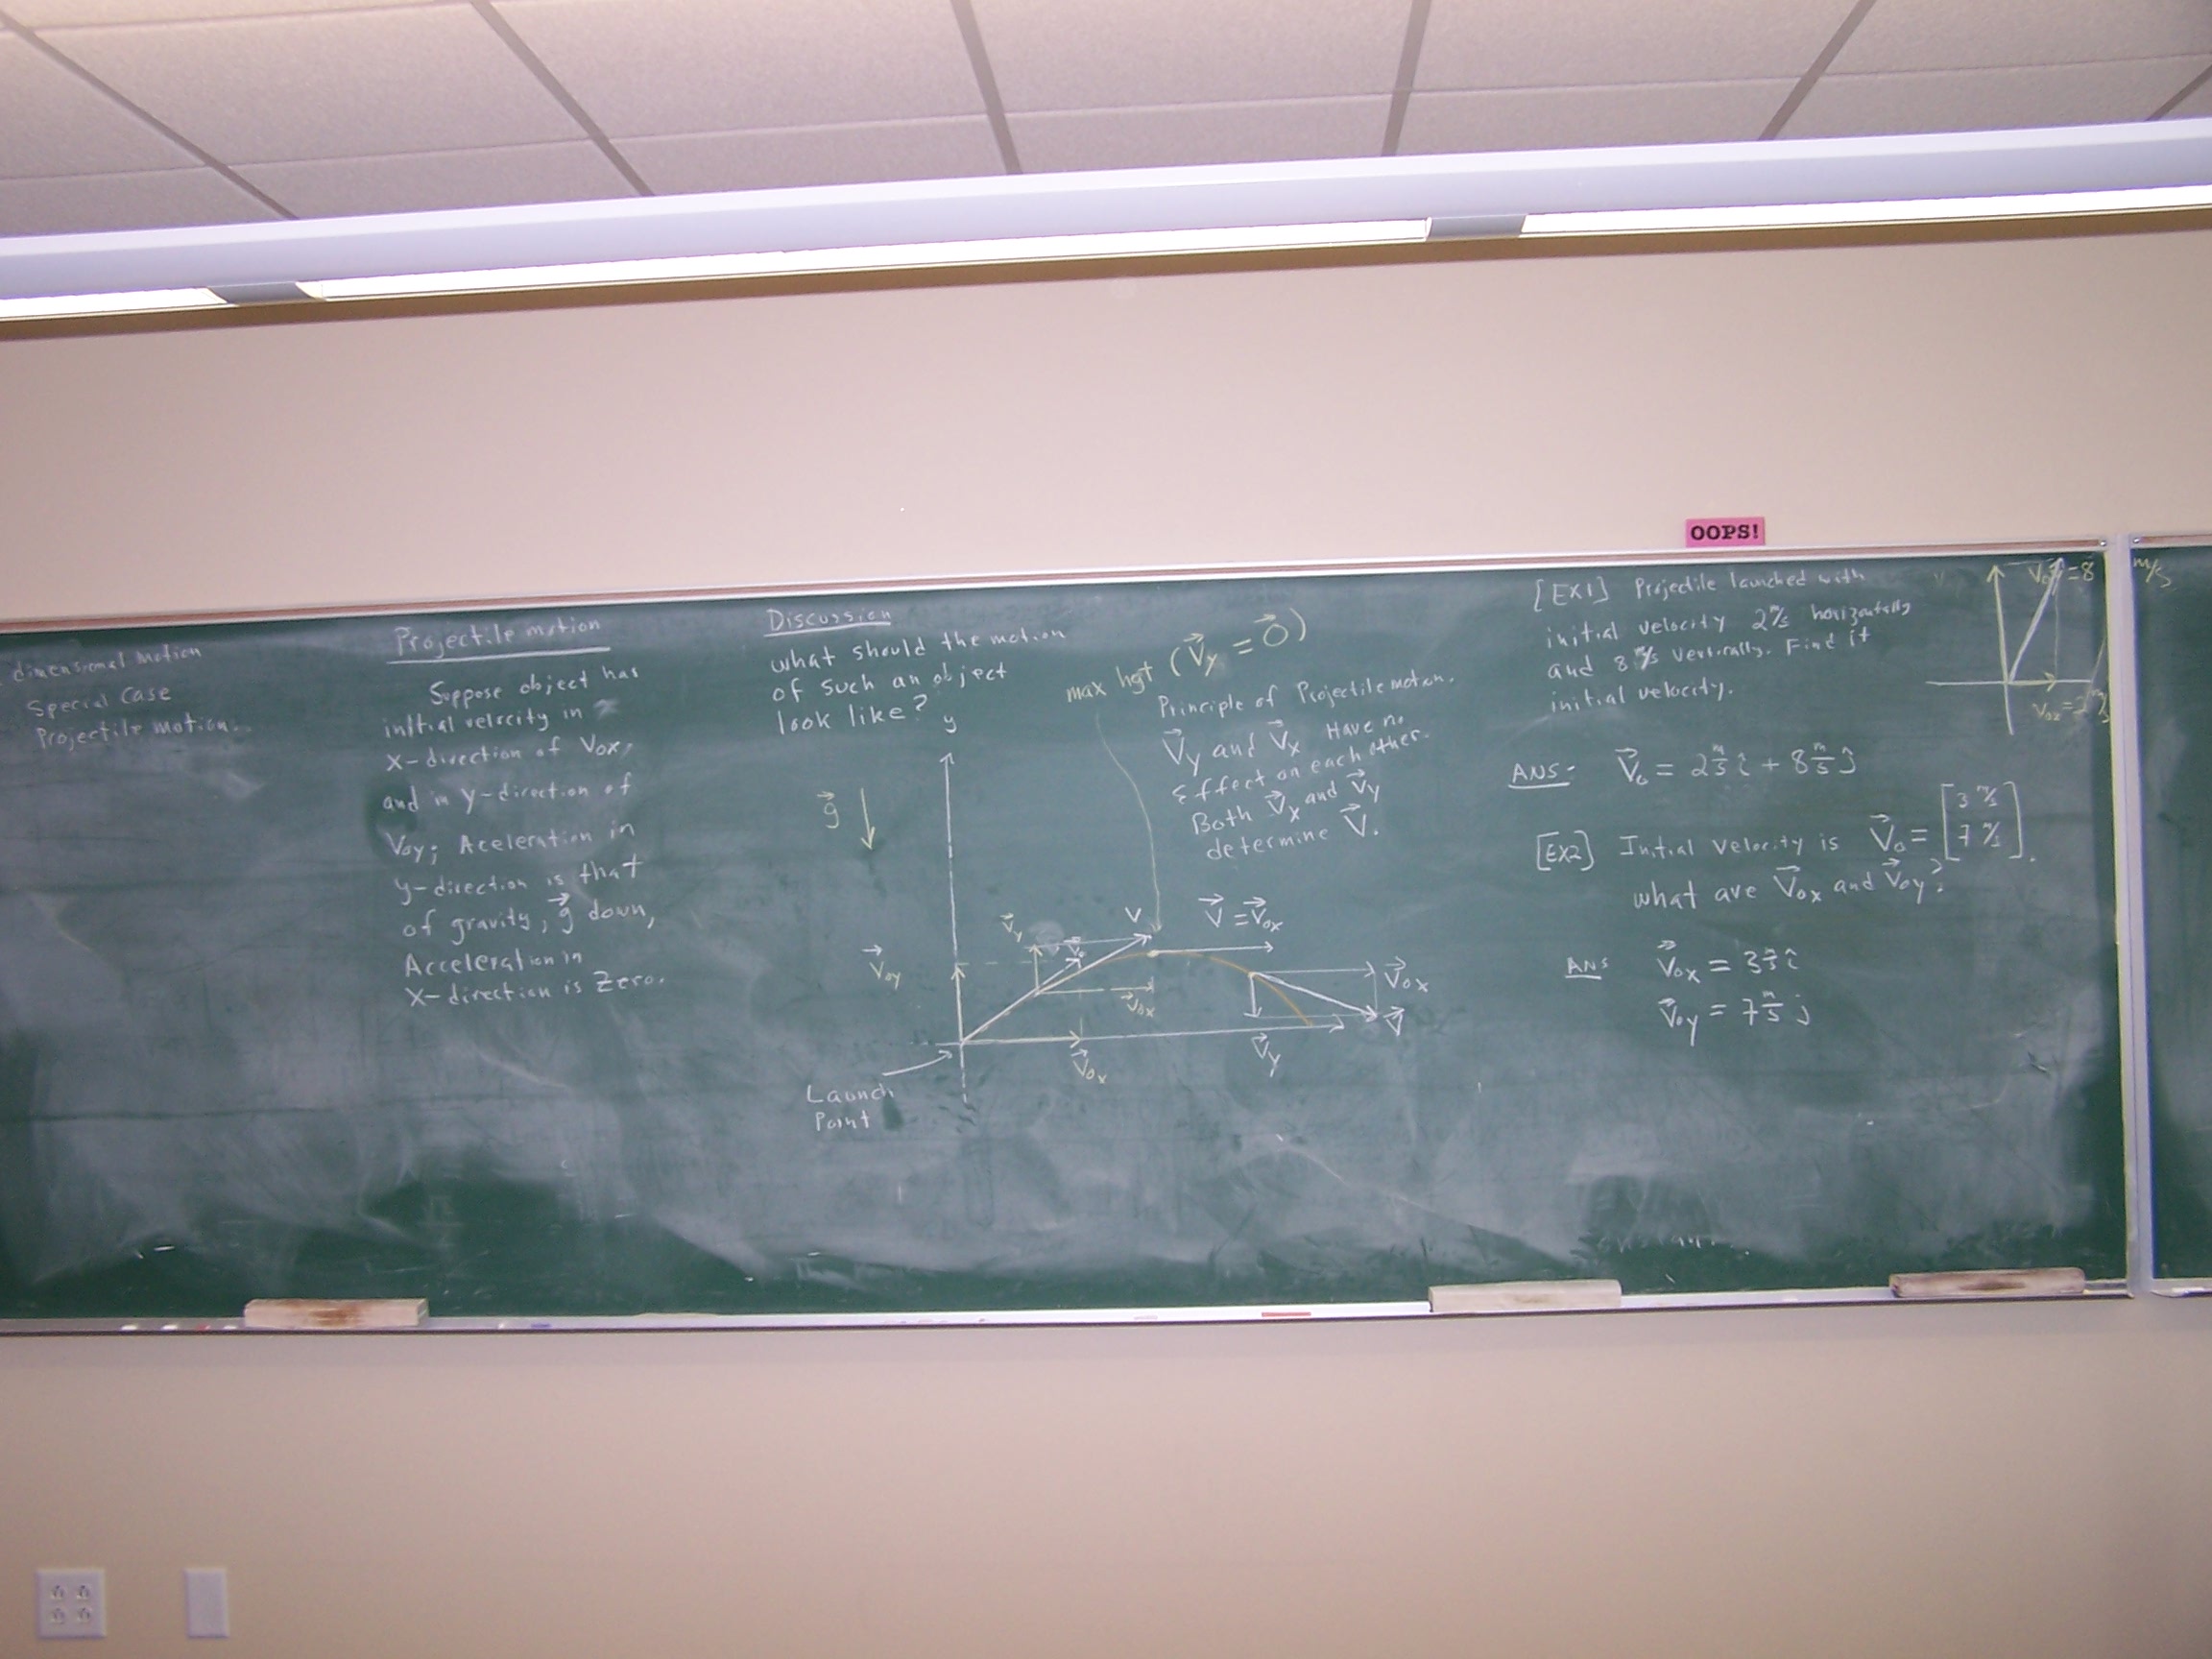 OOPS!
dimensional motion
Special Case
Projectile motion..
Projectile motion
Suppose object has
initial velocity in
x-direction of Vox,
and in y-direction of
Voy; Aceleration in
y-direction is that
of gravity, g⃗ down,
Acceleration in
X-direction is Zero.
Discussion
what should the motion
of such an object
look like?
max hgt (V⃗y = 0⃗)
Principle of Projectile motion.
V⃗y and V⃗x Have no
Effect on each other.
Both V⃗x and V⃗y
determine V⃗.
y
g⃗
V⃗oy
V⃗y
V⃗o
V
V⃗ox
V⃗ = V⃗ox
V⃗ox
V⃗
V⃗y
V⃗ox
Launch
Point
[EX1] Projectile launched with
initial velocity 2 m/s horizontally
and 8 m/s vertically. Find it
initial velocity.
Voy = 8 m/s
Vox = 2 m/s
ANS- V⃗o = 2 m/s î + 8 m/s ĵ
[EX2] Initial Velocity is V⃗o = [3 m/s
7 m/s].
what are V⃗ox and V⃗oy?
ANS V⃗ox = 3 m/s î
V⃗oy = 7 m/s ĵ